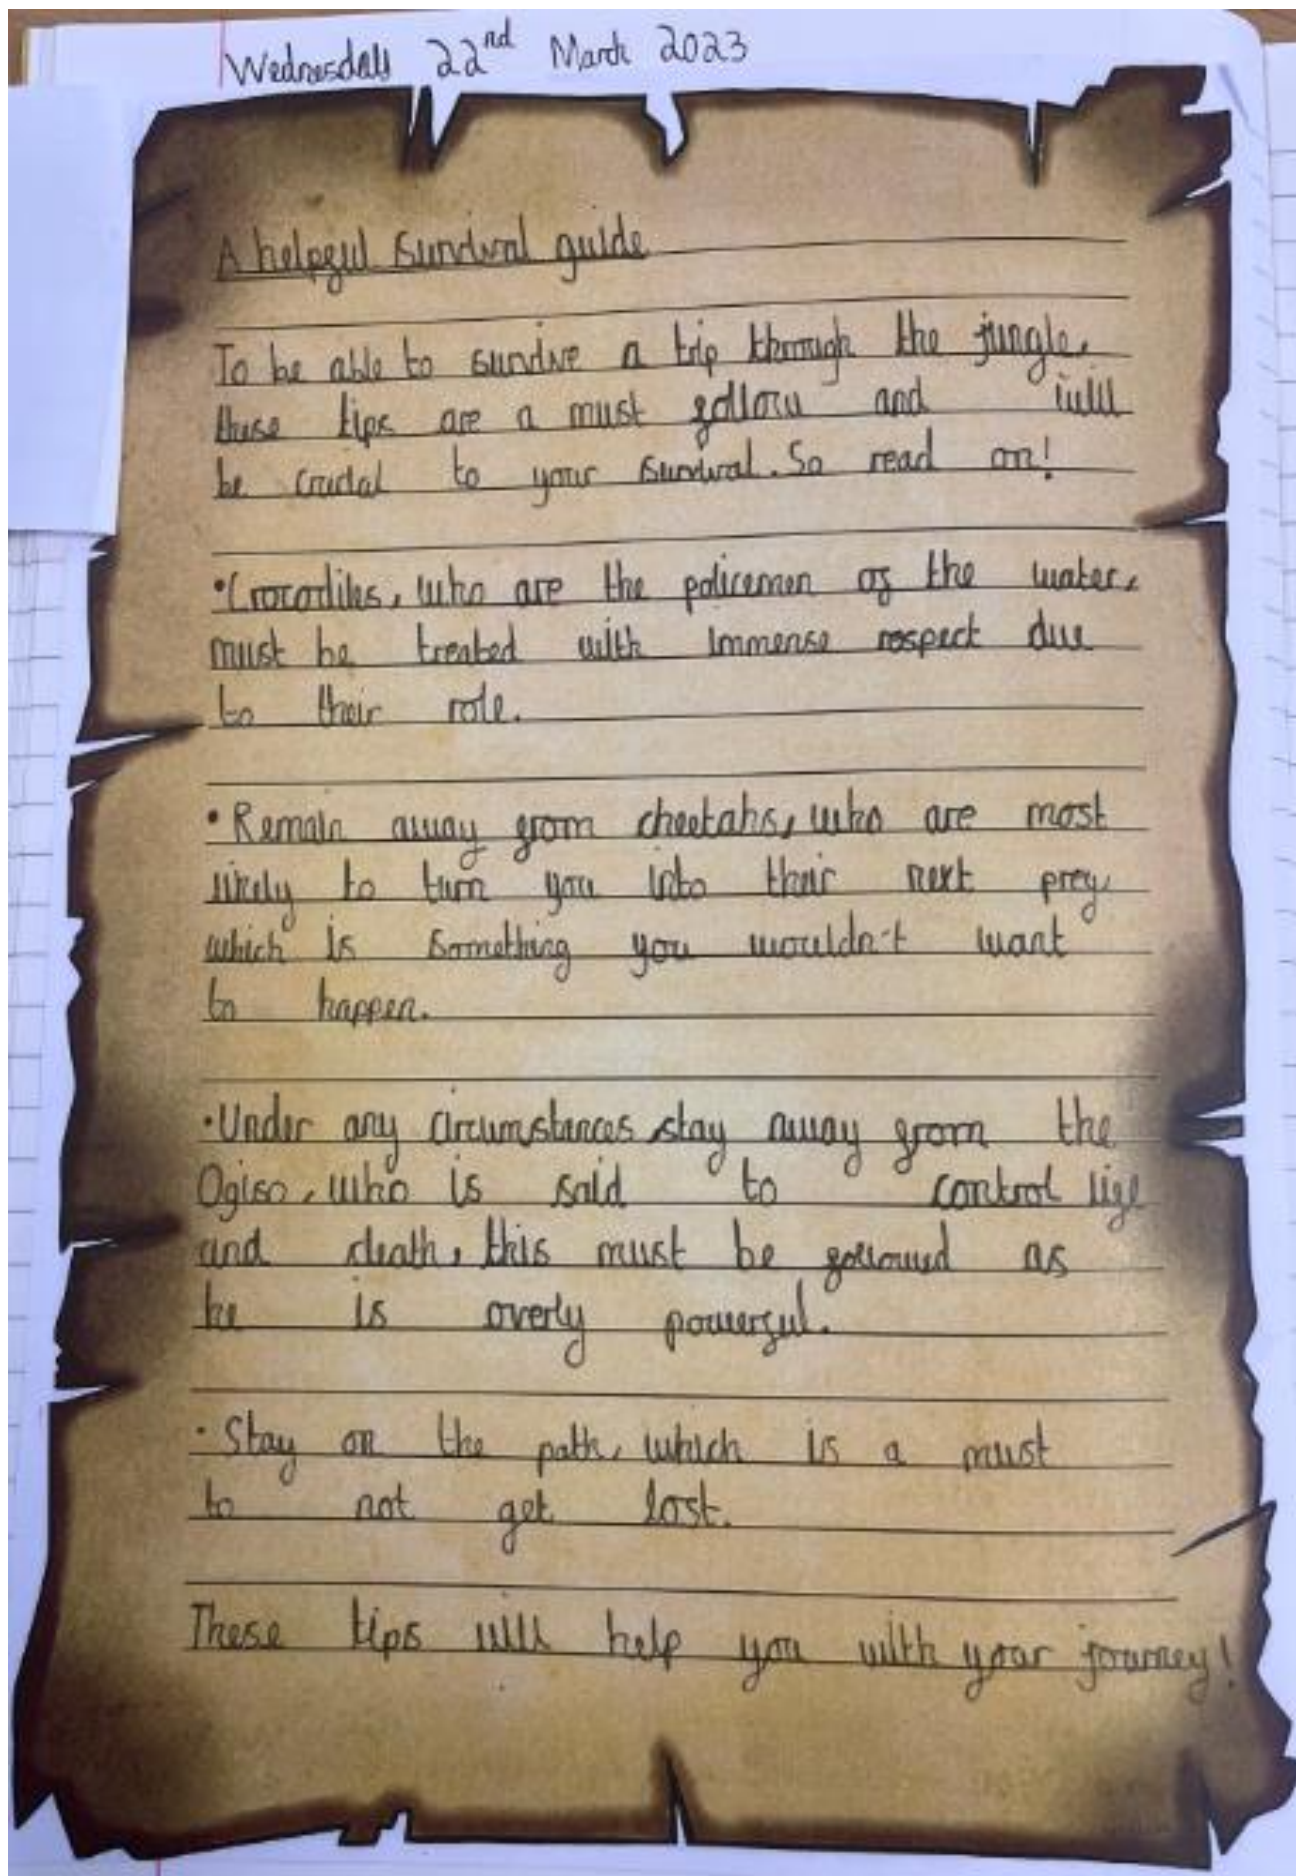 Wednesday 22nd March 2023
A helpful survival guide
To be able to survive a trip through the jungle,
these tips are a must follow and will
be crucial to your survival. So read on!
•Crocodiles, who are the policemen of the water,
must be treated with immense respect due
to their role.
•Remain away from cheetahs, who are most
likely to turn you into their next prey,
which is something you wouldn't want
to happen.
•Under any circumstances, stay away from the
Ogiso, who is said to control life
and death, this must be followed as
he is overly powerful.
•Stay on the path, which is a must
to not get lost.
These tips will help you with your journey!